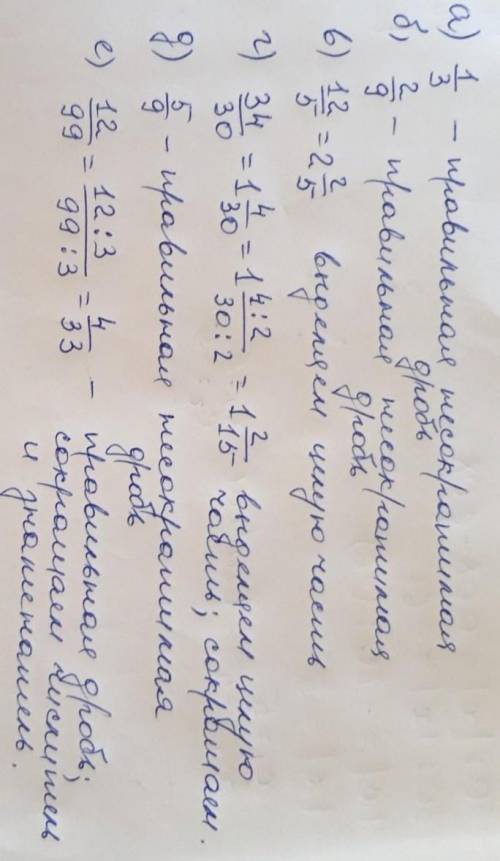 а) 1/3 – правильная несократимая
дробь
б) 2/9 – правильная несократимая
дробь
в) 12/5 = 2 2/5 выделяем целую часть
г) 34/30 = 1 4/30 = 1 4:2/30:2 = 1 2/15 выделяем целую
часть; сокращаем.
д) 5/9 – правильная несократимая
дробь
е) 12/99 = 12:3/99:3 = 4/33 – правильная дробь;
сокращаем числитель
и знаменатель.